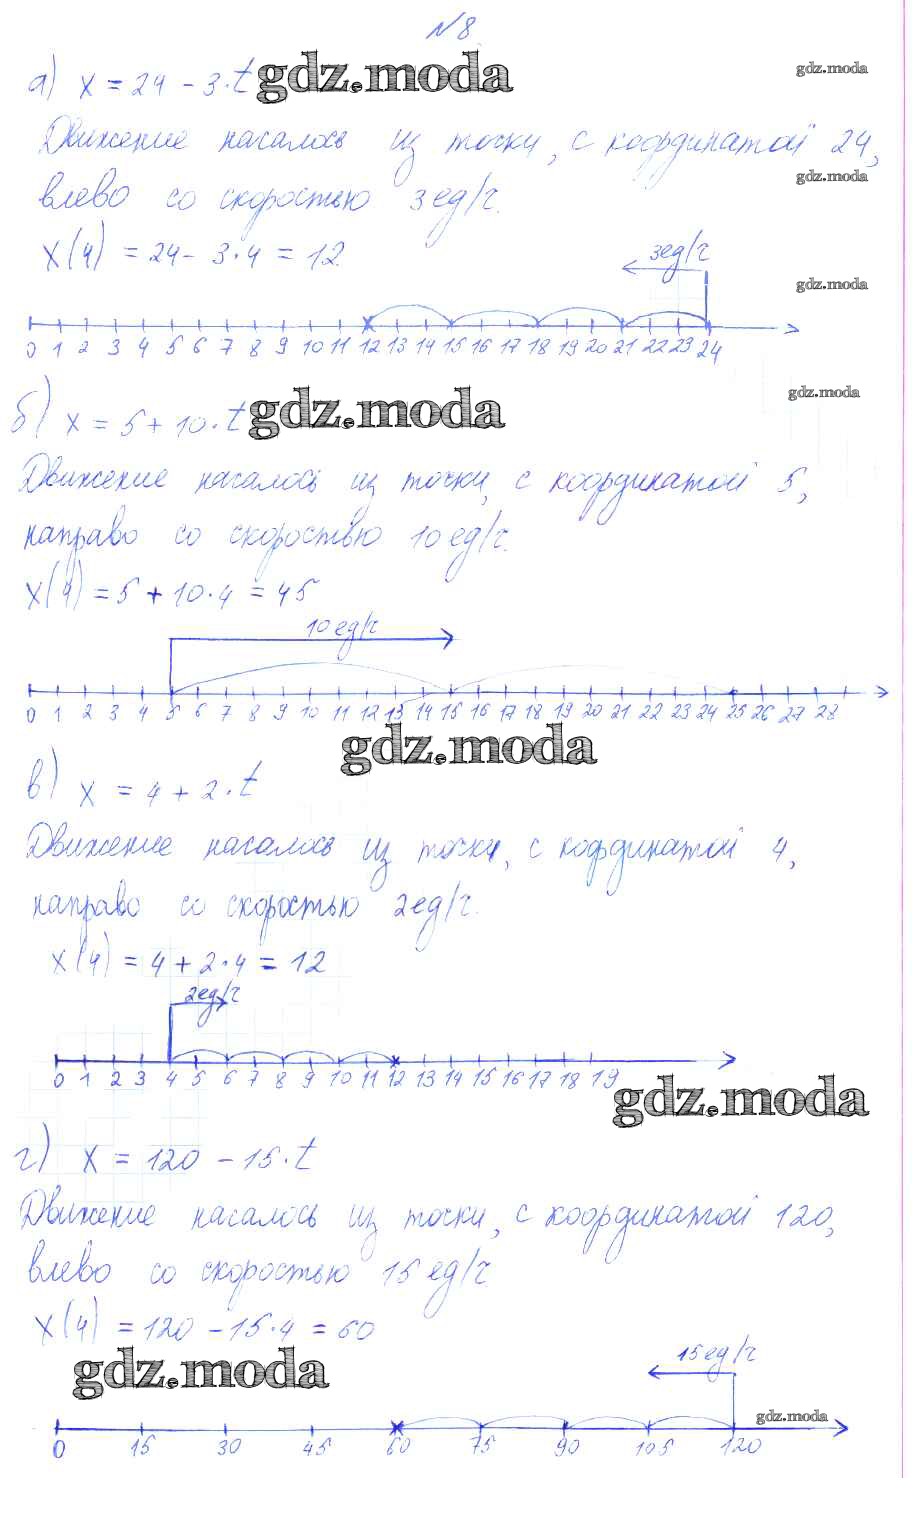 №8
а) x = 24 - 3·t gdz.moda
gdz.moda
Движение началось из точки, с координатой 24,
gdz.moda
влево со скоростью 3ед/ч.
x(4) = 24 - 3·4 = 12.
3ед/ч
gdz.moda
0 1 2 3 4 5 6 7 8 9 10 11 12 13 14 15 16 17 18 19 20 21 22 23 24
gdz.moda
б) x = 5 + 10·t gdz.moda
Движение началось из точки, с координатой 5,
направо со скоростью 10ед/ч.
x(4) = 5 + 10·4 = 45
10ед/ч
0 1 2 3 4 5 6 7 8 9 10 11 12 13 14 15 16 17 18 19 20 21 22 23 24 25 26 27 28
gdz.moda
в) x = 4 + 2·t
Движение началось из точки, с координатой 4,
направо со скоростью 2ед/ч.
x(4) = 4 + 2·4 = 12
2ед/ч
0 1 2 3 4 5 6 7 8 9 10 11 12 13 14 15 16 17 18 19
gdz.moda
г) x = 120 - 15·t
Движение началось из точки, с координатой 120,
влево со скоростью 15 ед/ч
x(4) = 120 - 15·4 = 60
gdz.moda
15ед/ч
gdz.moda
0 15 30 45 60 75 90 105 120